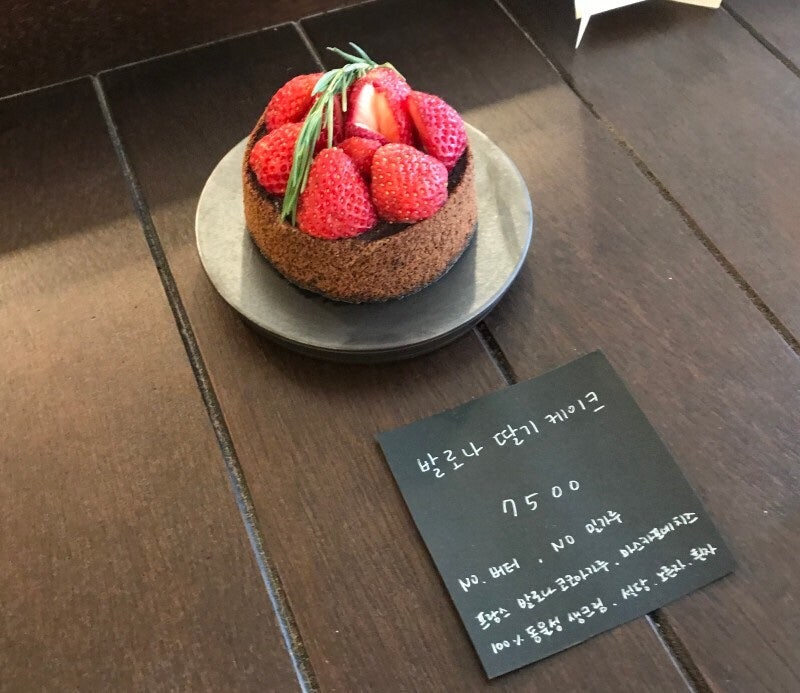 발로나 딸기 케이크
7500
NO. 버터 . NO 밀가루
프랑스 발로나 코코아가루. 마스카포네치즈
100% 동물성 생크림. 설탕. 오렌지.